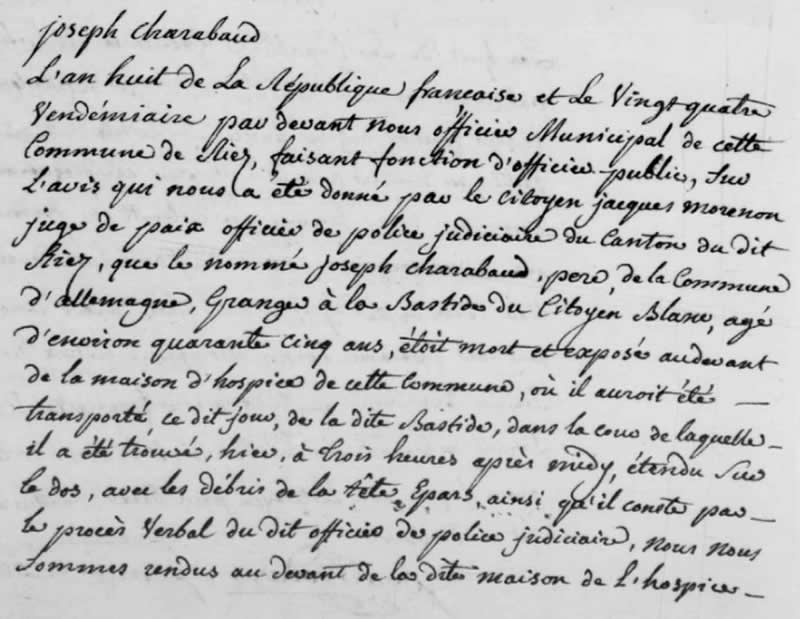 joseph charabaud
L'an huit de La République française et Le Vingt quatre
Vendémiaire par devant nous officier Municipal de cette
Commune de Riez, faisant fonction d'officier public, sur
L'avis qui nous a été donné par le Citoyen jacques morenon
juge de paix officier de police judiciaire du Canton du dit
Riez, que le nommé joseph charabaud, pere, de la Commune
d'allemagne, Granger à la Bastide du Citoyen Blanc, agé
d'environ quarante cinq ans, étoit mort et exposé au devant
de la maison d'hospice de cette Commune, où il auroit été —
transporté, ce dit jour, de la dite Bastide, dans la cour de laquelle —
il a été trouvé, hier, à trois heures après midy, étendu sur
le dos, avec les débris de la tête Epars, ainsi qu'il conste par —
le procès Verbal du dit officier de police judiciaire, nous nous
Sommes rendus au devant de la dite maison de L'hospice —